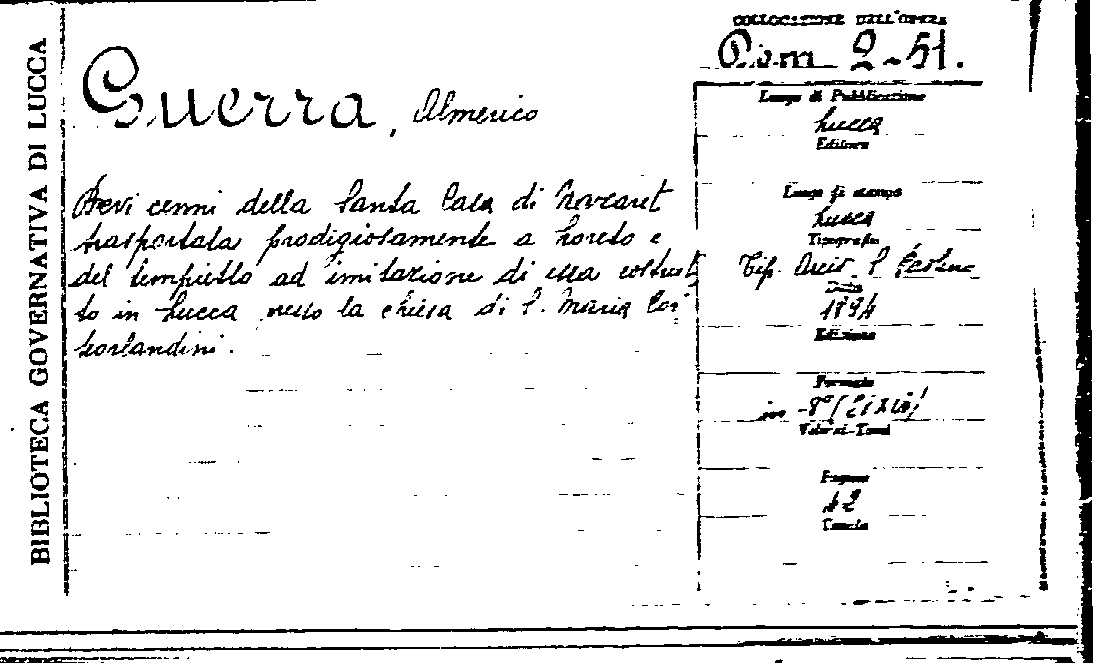 BIBLIOTECA GOVERNATIVA DI LUCCA
COLLOCAZIONE DELL'OPERA
2-51.
Guerra, Almerico
Brevi cenni della Santa Casa di Nazaret
trasportata prodigiosamente a Loreto e
del tempietto ad imitazione di essa costrut
to in Lucca presso la chiesa di S. Maria Cor
horlandini.
Luogo di Pubblicazione
Lucca
Editore
Luogo di stampa
Lucca
Tipografia
Tip. Arciv. S. Paolino
Data
1894
Edizione
Formato
in-8°
Volumi-Tomi
Pagine
42
Tavole